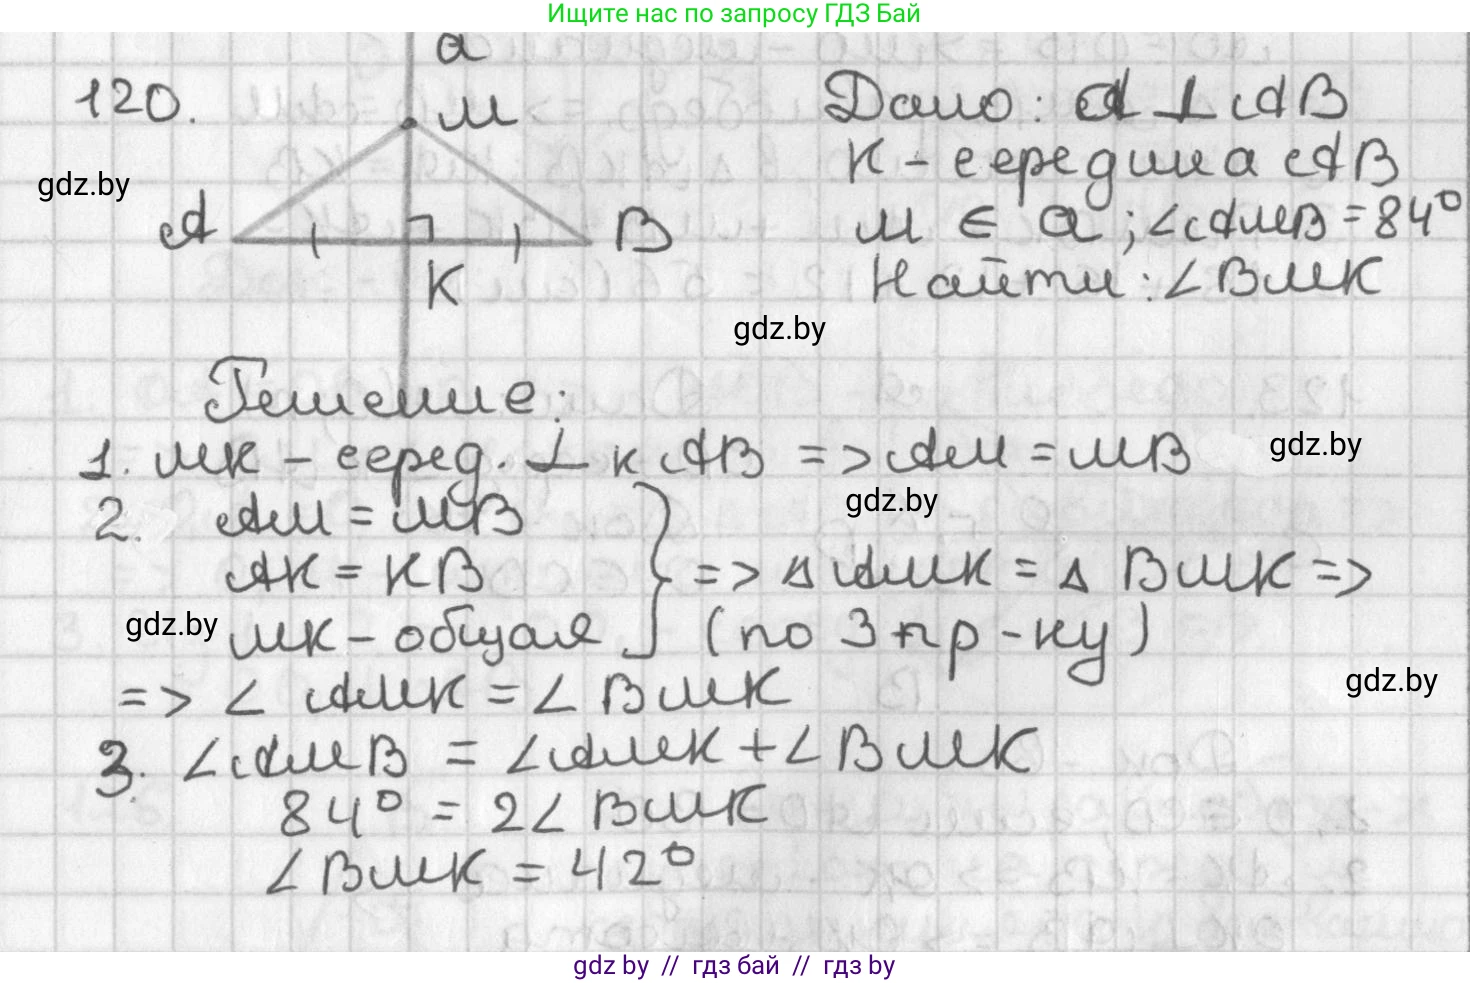 Ищите нас по запросу ГДЗ Бай
a
120.
M
Дано: a ⊥ AB
K - середина AB
gdz.by
A
B
M ∈ a; ∠AMB = 84°
K
Найти: ∠BMK
gdz.by
Решение:
1. MK - серед. ⊥ к AB => AM = MB
gdz.by
2. AM = MB
gdz.by
AK = KB
=> △ AMK = △ BMK =>
gdz.by
MK - общая
(по 3 пр-ку)
=> ∠ AMK = ∠ BMK
gdz.by
3. ∠AMB = ∠AMK + ∠BMK
84° = 2∠ BMK
∠BMK = 42°
gdz by // гдз бай // гдз by